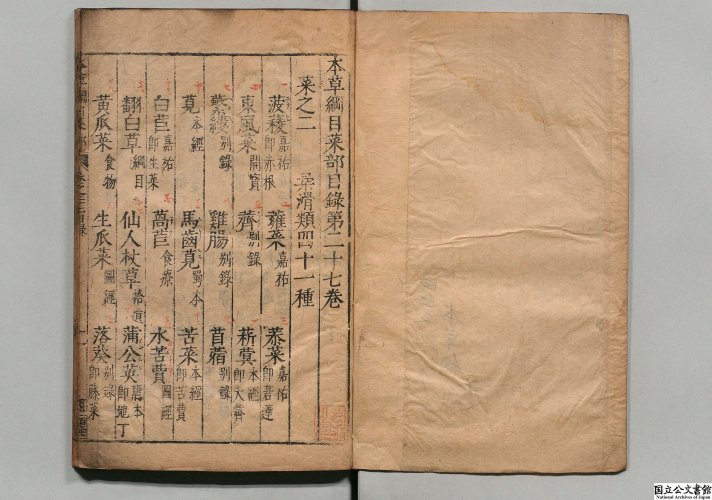 本草綱目菜部目錄第二十七卷
菜之二 柔滑類四十一種
菠薐 嘉祐 即赤根 蕹菜 嘉祐 菾菜 嘉祐 即莙薘
東風菜 開寶 薺 別錄 菥蓂 本經 即大薺
蘩縷 別錄 雞腸 別錄 苜蓿 別錄
莧 本經 馬齒莧 蜀本 苦菜 本經 即苦蕒
白苣 嘉祐 即生菜 萵苣 食療 水苦蕒 圖經
翻白草 綱目 仙人杖草 拾遺 蒲公英 唐本 即地丁
黃瓜菜 食物 生瓜菜 圖經 落葵 別錄 即藤菜
国立公文書館
National Archives of Japan